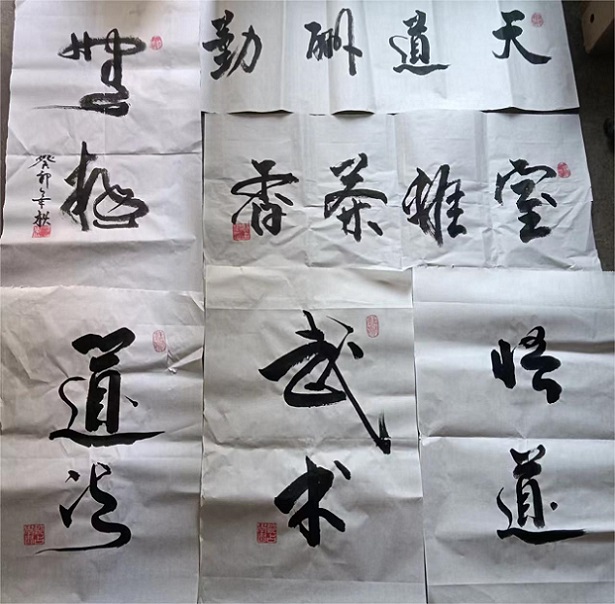 天道酬勤
無極
癸卯
室雅茶香
悟道
武术
道法